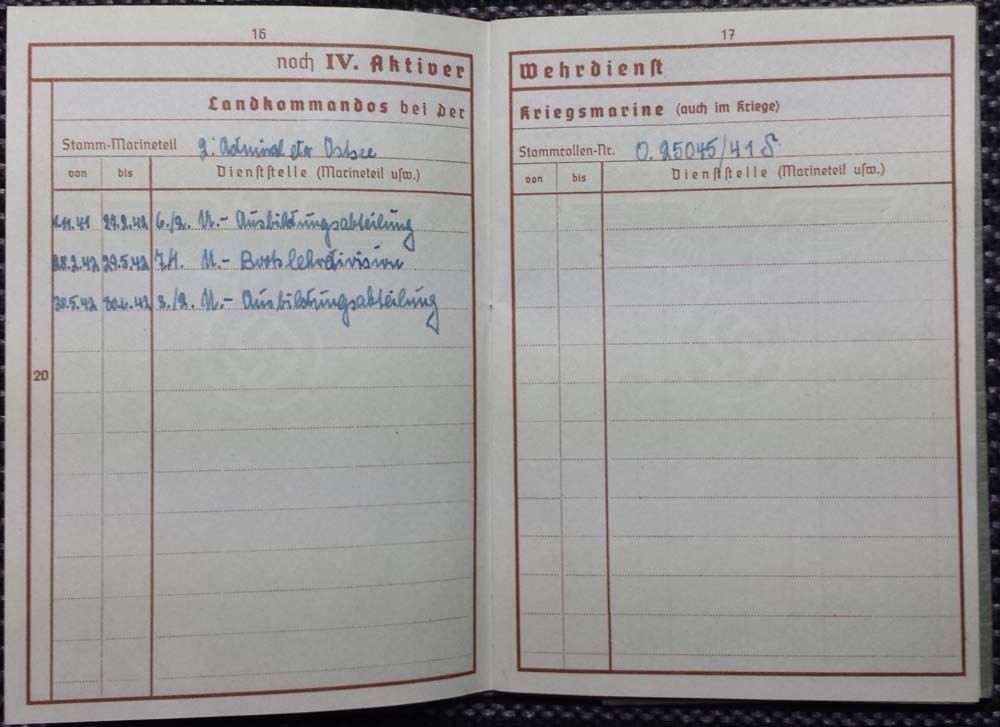 16
noch IV. Aktiver
Landkommandos bei der
Stamm-Marineteil 2. Admiral der Ostsee
von bis Dienststelle (Marineteil usw.)
1.11.41 27.2.42 6./2. U.-Ausbildungsabteilung
28.2.42 29.5.42 7./1. U.-Bootslehrdivision
30.5.42 30.6.42 3./2. U.-Ausbildungsabteilung
20
17
Wehrdienst
Kriegsmarine (auch im Kriege)
Stammrollen-Nr. O. 25045/41 S.
von bis Dienststelle (Marineteil usw.)